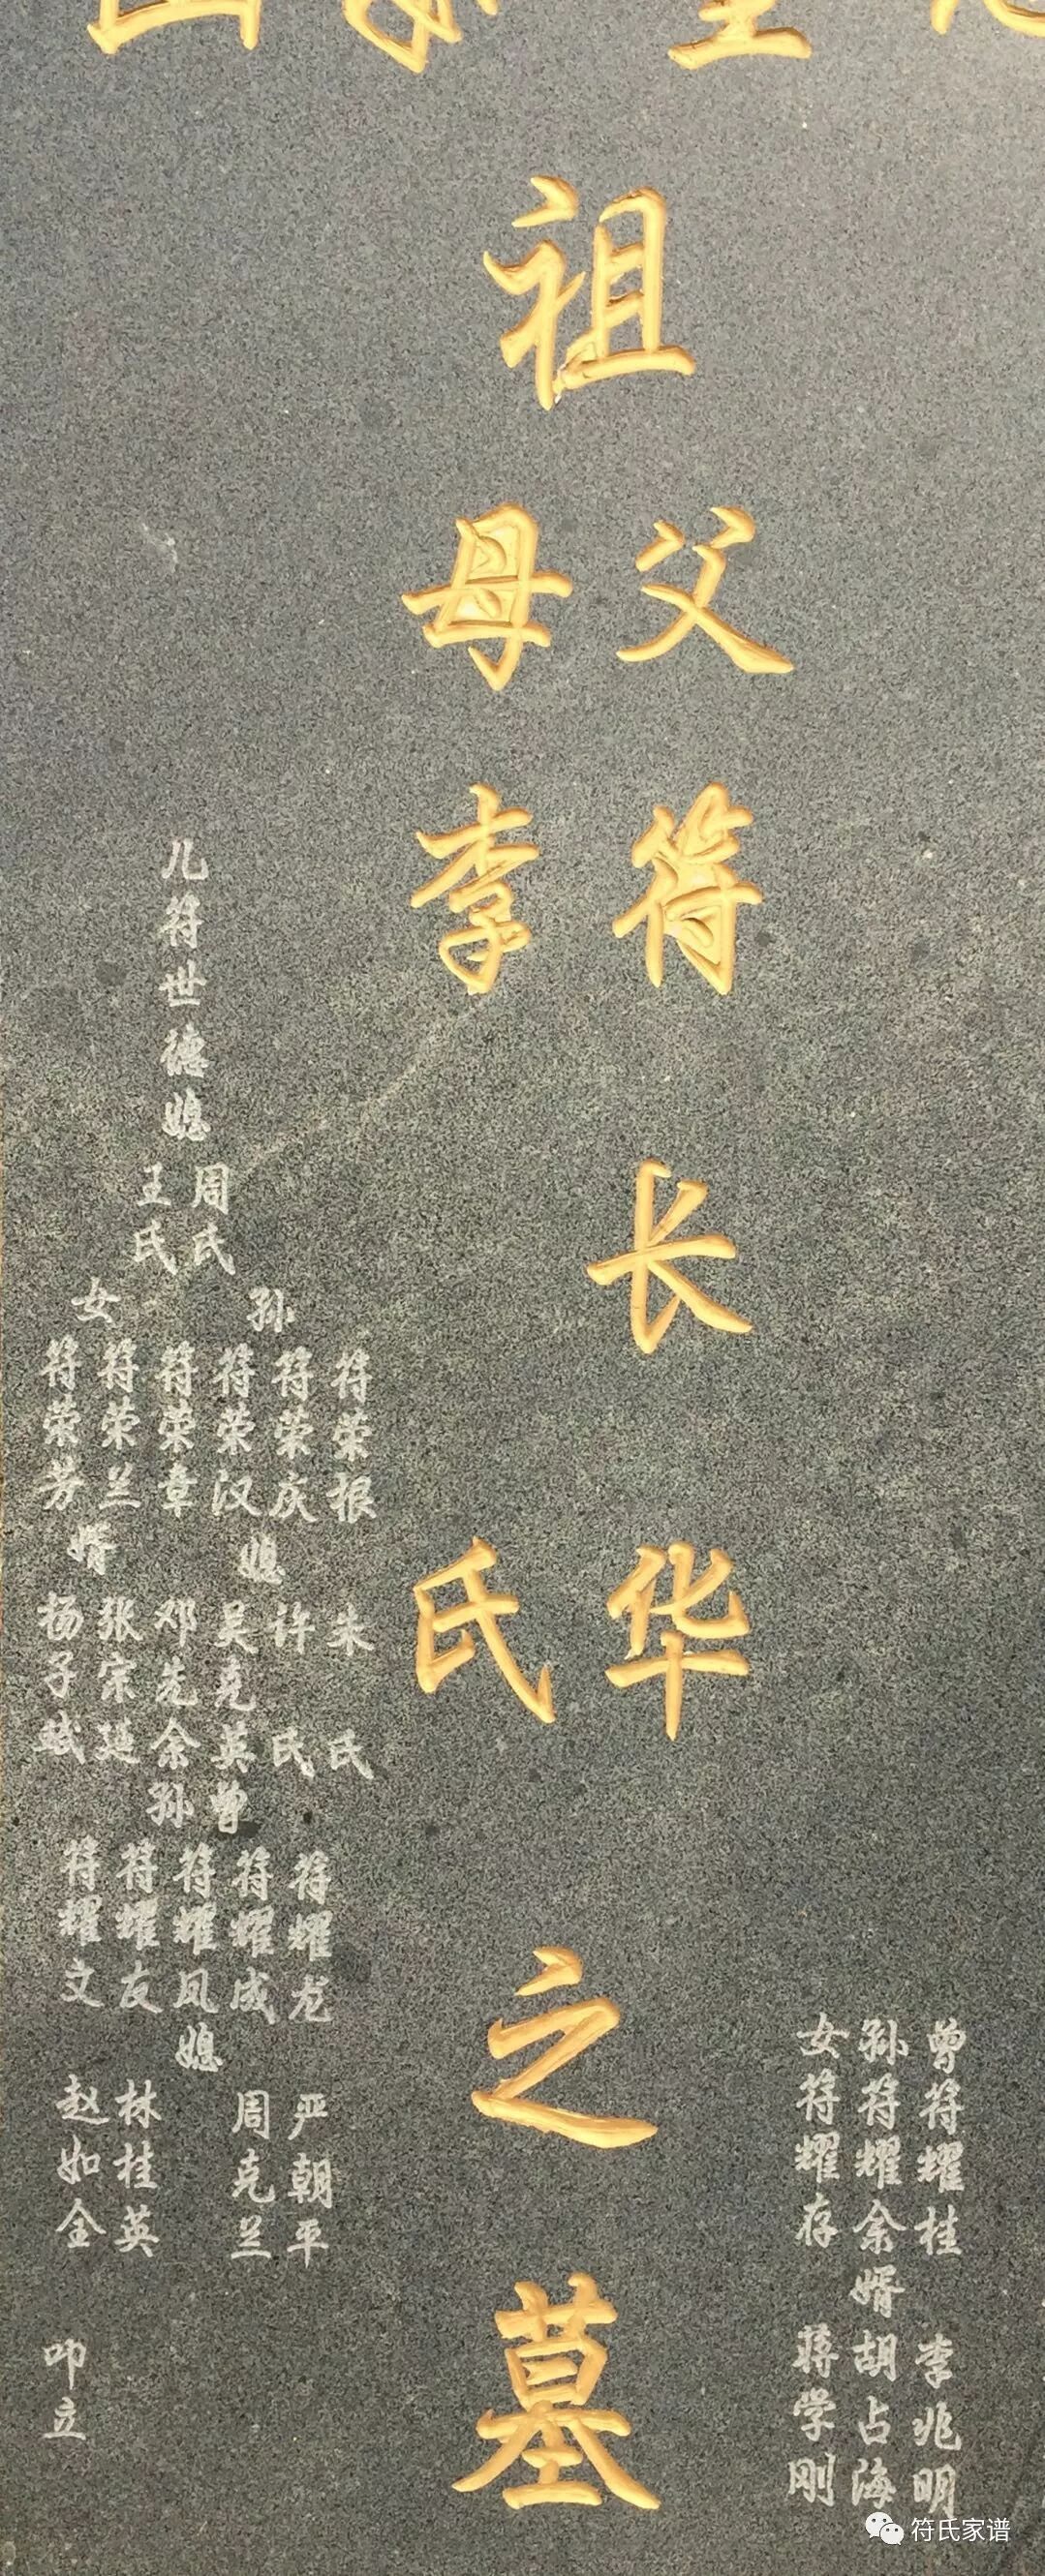 祖
父 母
符 李
长
华 氏
之
墓
曾 孙 女
符耀桂
符耀余
符耀存
婿
李兆明
胡占海
蒋学刚
儿符世德媳
周氏
王氏
孙
女
符荣根
符荣庆
符荣汉
符荣章
符荣兰
符荣芳
媳
婿
朱氏
许氏
吴克英
邓先余
张宗廷
杨子斌
曾孙
符耀龙
符耀成
符耀凤
符耀友
符耀文
媳
严朝平
周克兰
林桂英
赵如全
叩立
符氏家谱